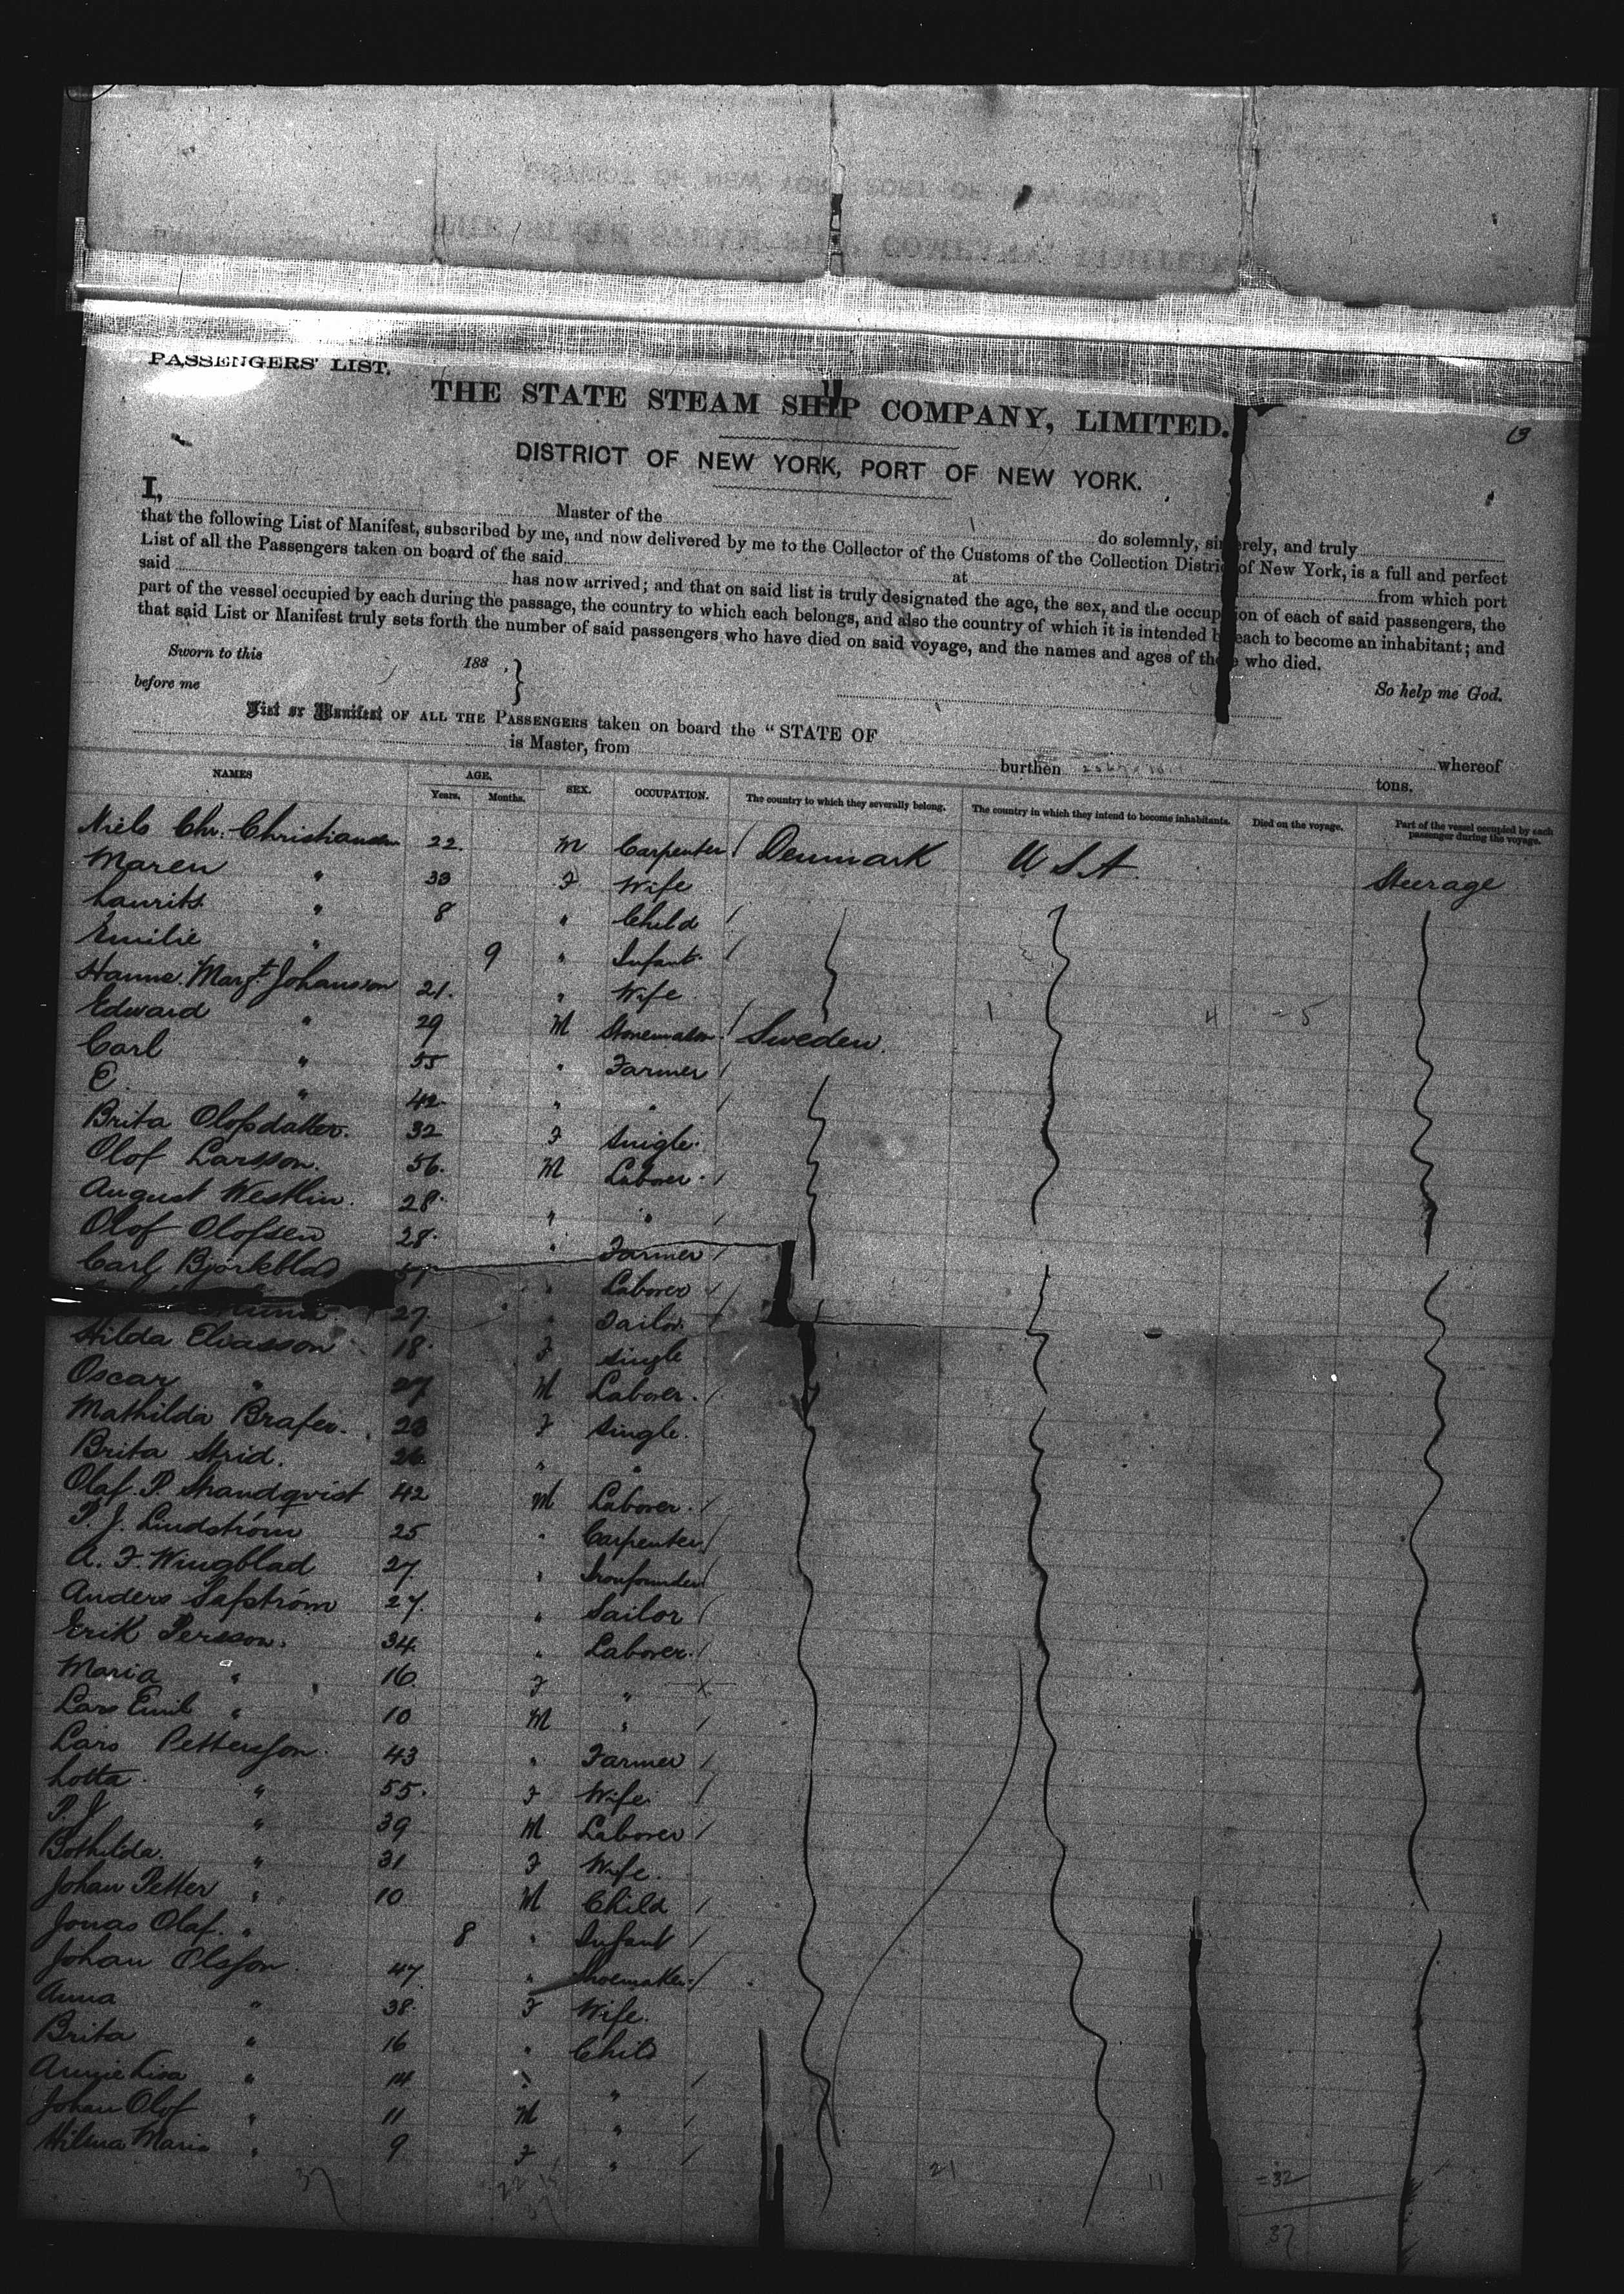 PASSENGERS' LIST.
THE STATE STEAM SHIP COMPANY, LIMITED.
13
DISTRICT OF NEW YORK, PORT OF NEW YORK.
I, Master of the do solemnly, sincerely, and truly
that the following List of Manifest, subscribed by me, and now delivered by me to the Collector of the Customs of the Collection District of New York, is a full and perfect
List of all the Passengers taken on board of the said at from which port
said has now arrived; and that on said list is truly designated the age, the sex, and the occupation of each of said passengers, the
part of the vessel occupied by each during the passage, the country to which each belongs, and also the country of which it is intended by each to become an inhabitant; and
that said List or Manifest truly sets forth the number of said passengers who have died on said voyage, and the names and ages of those who died.
Sworn to this 188 , }
So help me God.
before me
List or Manifest OF ALL THE PASSENGERS taken on board the "STATE OF whereof
is Master, from burthen tons.
NAMES AGE. SEX. OCCUPATION. The country to which they severally belong. The country in which they intend to become inhabitants. Died on the voyage. Part of the vessel occupied by each passenger during the voyage.
Years. Months.
Niels Chr. Christiansen 22. M Carpenter / Denmark U S A Steerage
Maren " 33 F Wife
Laurits " 8 " Child /
Emilie " 9 " Infant /
Hanne Margt. Johansson 21. " Wife
Edward " 29 M Stonemason / Sweden 1 4 = 5
Carl " 55 " Farmer /
E. " 42 " " /
Brita Olofsdatter. 32 F Single.
Olof Larsson. 56. M Laborer. /
August Westlin. 28. " " /
Olof Olofsen 28. " Farmer /
Carl Björkblad 51 " Laborer /
27. " Tailor /
Hilda Eliasson 18. F Single
Oscar " 27 M Laborer. /
Mathilda 23 F Single.
Brita Strid. 26. " "
Olaf. P. Strandqvist 42 M Laborer. /
P. J. Lindström 25 " Carpenter /
A. F. Wingblad 27. " Ironfounder /
Anders Säfström 27. " Sailor /
Erik Persson. 34. " Laborer. /
Maria " 16 F " x
Lars Emil " 10 M " /
Lars Pettersson. 43 " Farmer /
Lotta. " 55. F Wife. /
P. J " 39 M Laborer /
Bothilda. " 31 F Wife.
Johan Petter " 10 M Child /
Jonas Olaf. " 8 " Infant /
Johan Olsson. 47. " Shoemaker. /
Anna " 38. F Wife.
Brita " 16 " Child
Annie Lisa " 14 " " /
Johan Olof " 11 M " /
Hilma Maria " 9 F " /
37 22 15 21 11 = 32
37 37